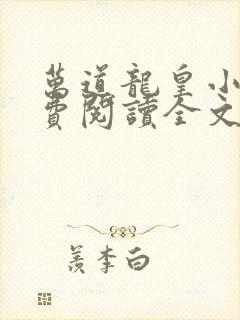 萬道龍皇小
費閱讀全文
羨李白